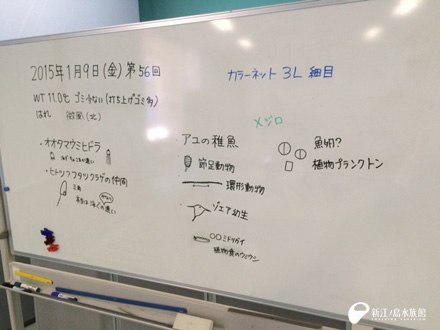 2015年1月9日(金)第56回
カラーネット 3L 細目
WT 11.0℃ ゴミ少ない(打ち上げゴミ多)
はれ 微風(北)
メジロ
・オオタマウミヒドラ
・ヒトツアシクラゲの仲間
アユの稚魚
・節足動物
・環形動物
・ゾエア幼生
○○ミドリガイ
植物食のウミウシ
魚卵?
植物プランクトン
新江ノ島水族館